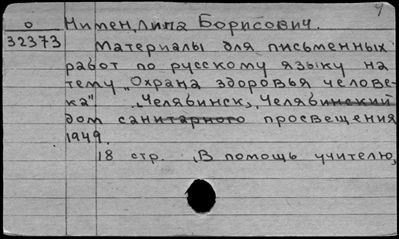 4
о Нимен, Липа Борисович.
32373 Материалы для письменных
работ по русскому языку на
тему „Охрана здоровья челове-
ка" „Челябинск„, Челябинский
дом санитарного просвещения
1949.
18 стр. „В помощь учителю„